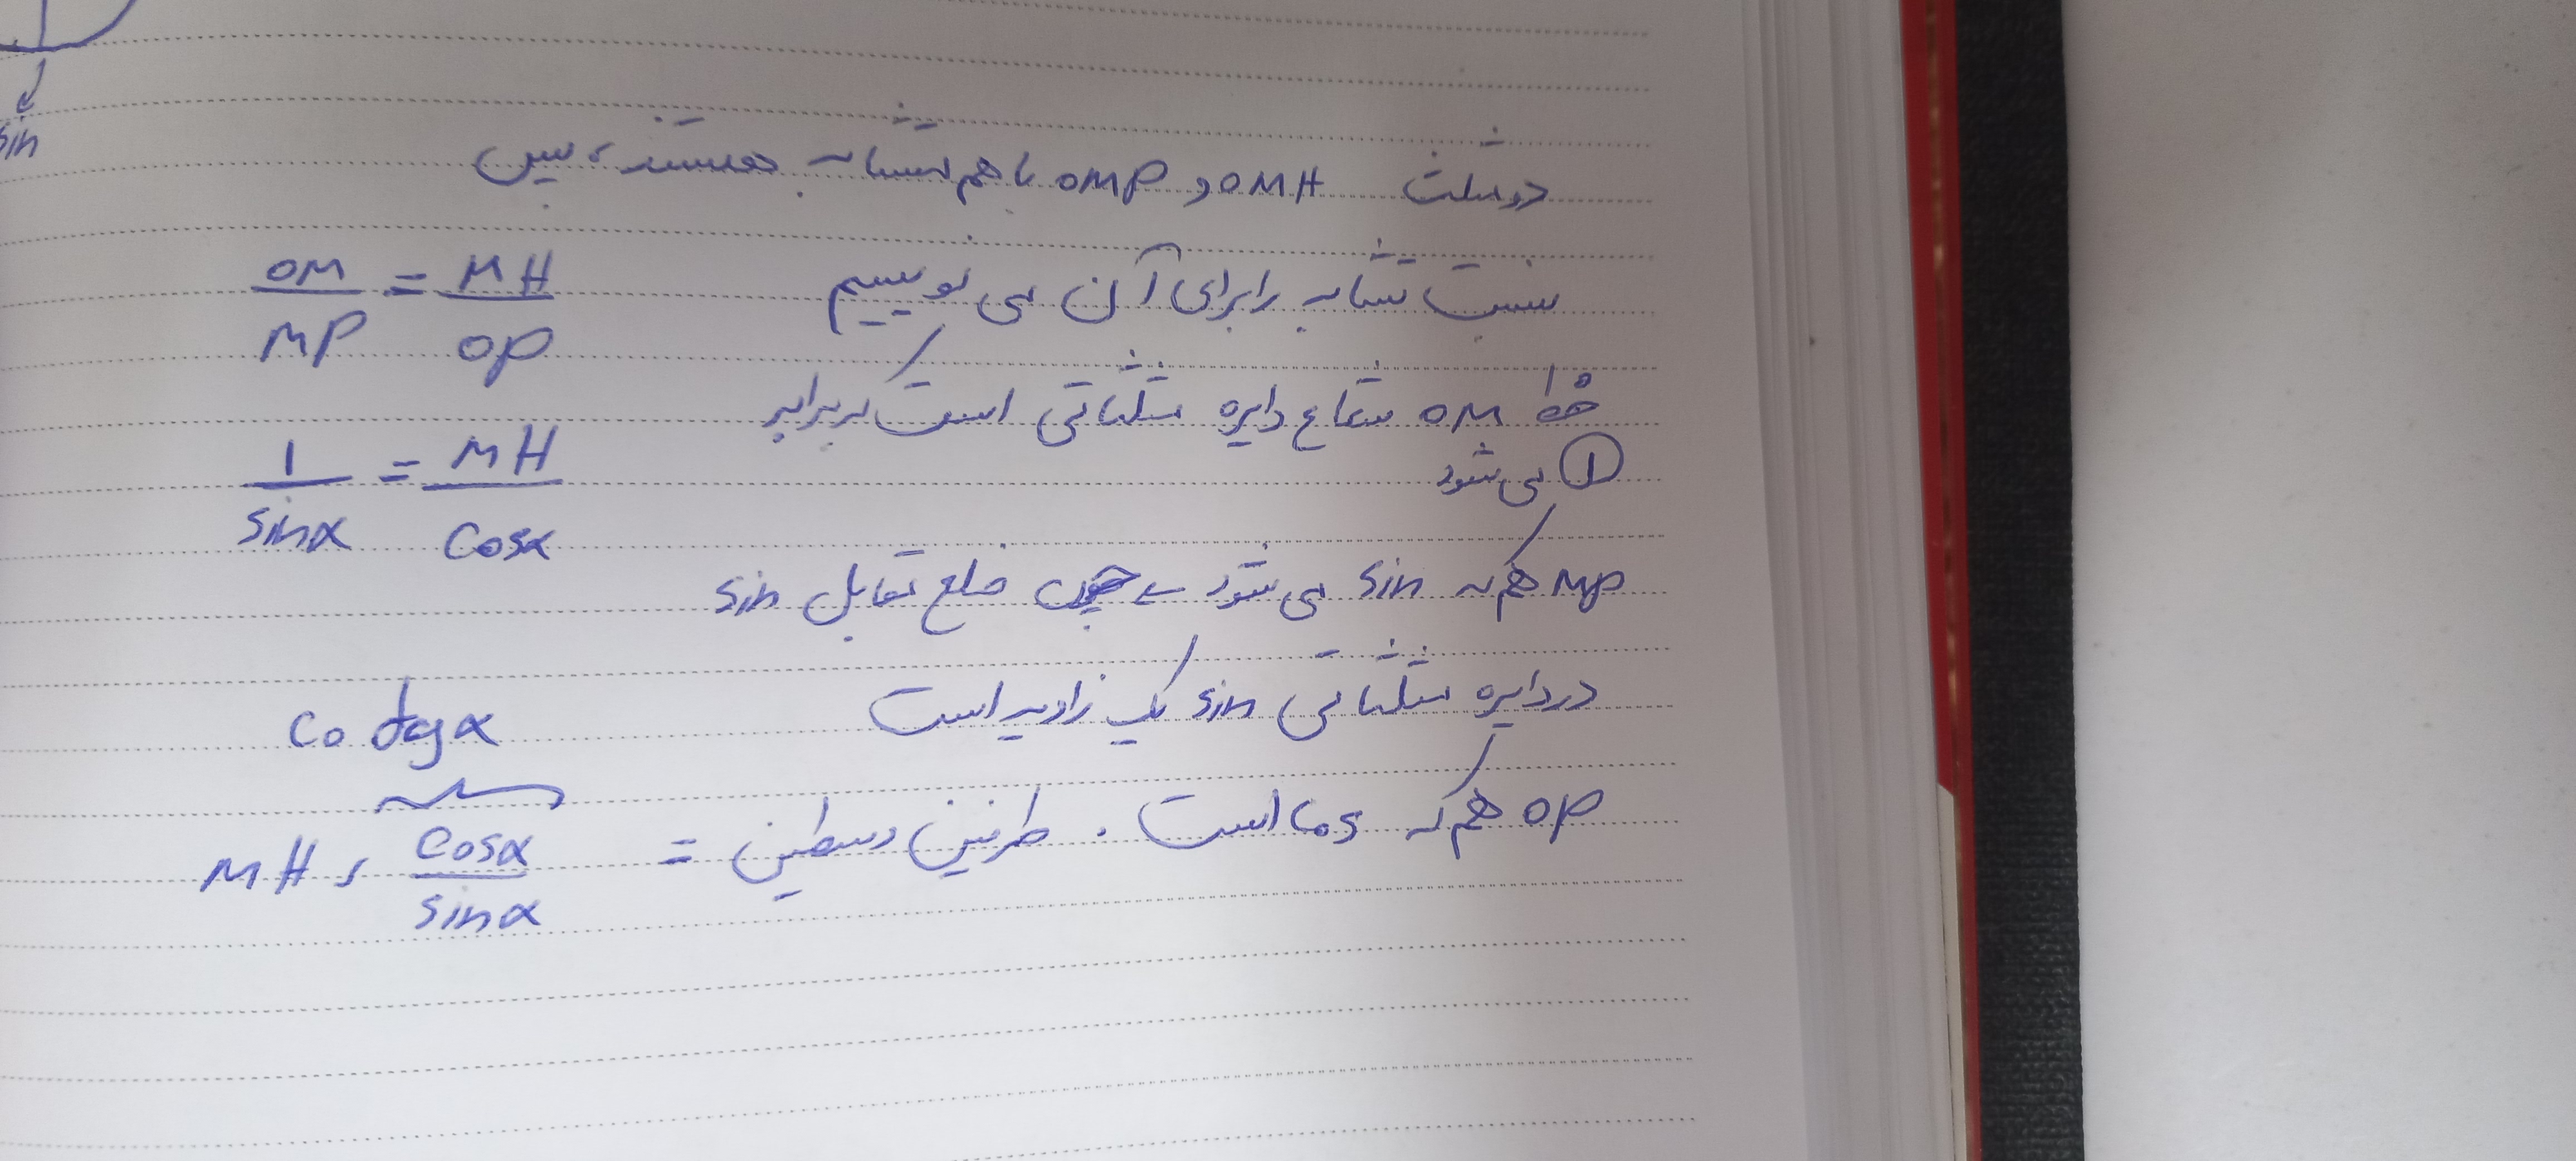 sin
دو مثلث OMH و OMP با هم متشابه هستند، پس
نسبت تشابه را برای آن می نویسیم
OM/MP = MH/OP
خط OM شعاع دایره مثلثاتی است که برابر
① می شود
1/sinα = MH/cosα
MP هم که sin می شود چون ضلع مقابل sin
در دایره مثلثاتی sin یک زاویه است
cotgα
OP هم که cos است. طرفین وسطین =
MH = cosα/sinα